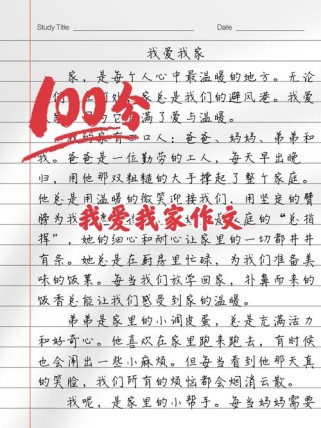 Study Title
Date
我爱我家
家，是每个人心中最温暖的地方。无论
家总是我们的避风港。我爱
满了爱与温暖。
100分
口人：爸爸、妈妈、弟弟和
我。爸爸是一位勤劳的工人，每天早出晚
归，用他那双粗糙的大手撑起了整个家庭。
他总是用温暖的微笑迎接我们，用坚定的臂
膀为我
庭的“总指
我爱我家作文
挥”，她的细心和耐心让家里的一切都井井
有条。她总是在厨房里忙碌，为我们准备美
味的饭菜。每当我们放学回家，扑鼻而来的
饭香总能让我们感受到家的温暖。
弟弟是家里的小调皮蛋，总是充满活力
和好奇心。他喜欢在家里跑来跑去，有时候
也会闹出一些小麻烦。但每当看到他那天真
的笑脸，我们所有的烦恼都会烟消云散。
我呢，是家里的小帮手。每当妈妈需要